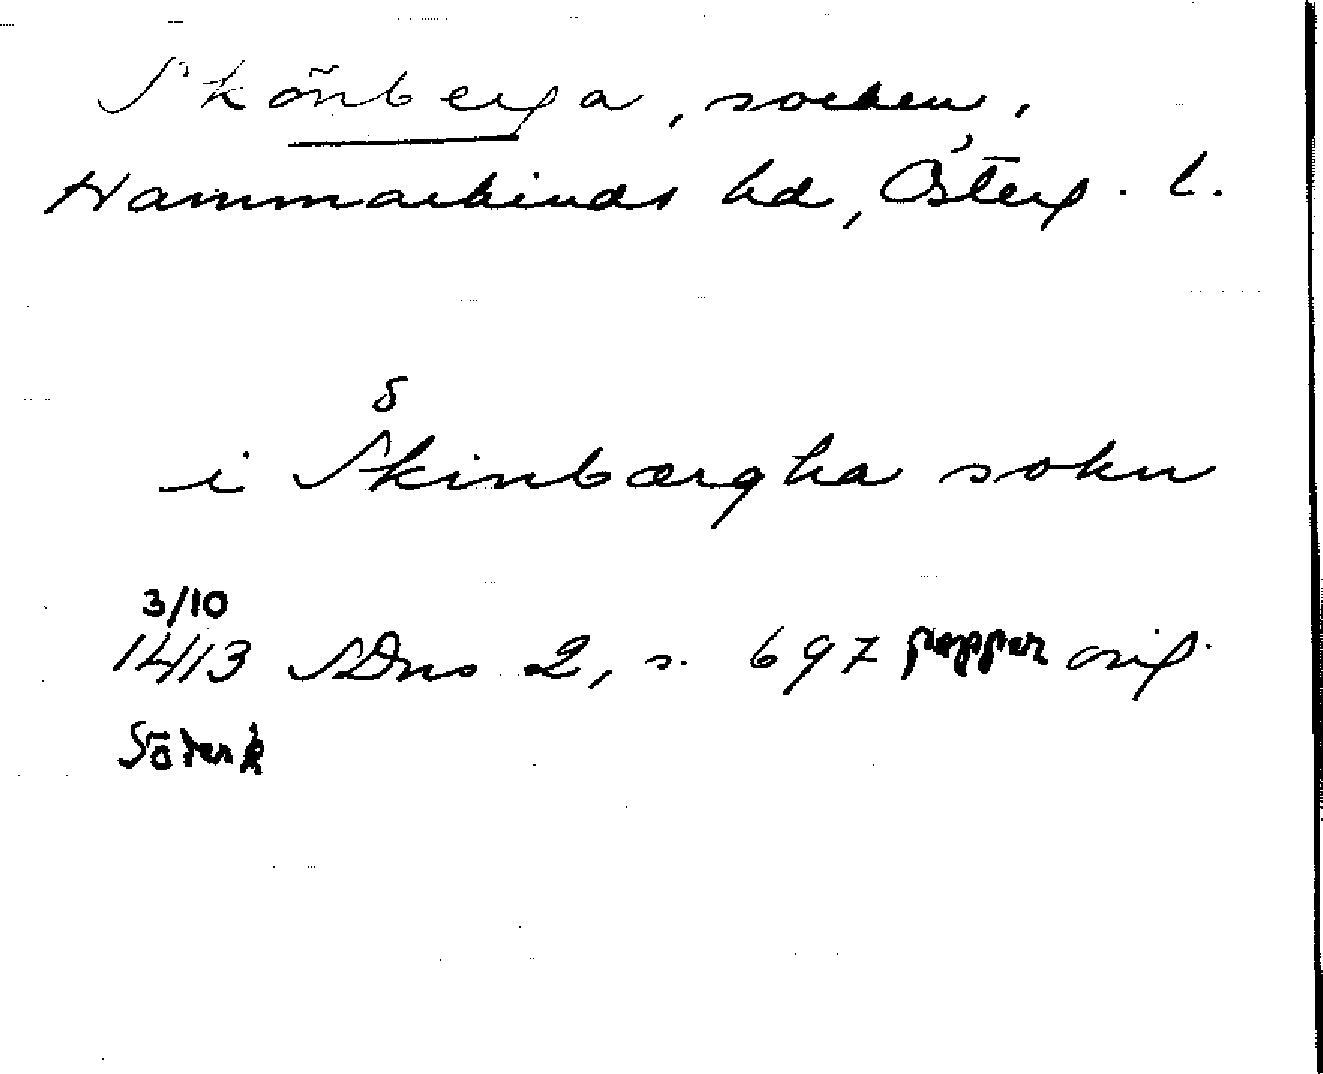 Skönberga, socken,
Hammarkinds hd, Österg. l.
s
i Skinbærgha sokn
3/10
1413 SDns 2, s. 697 papper orig.
Söderk